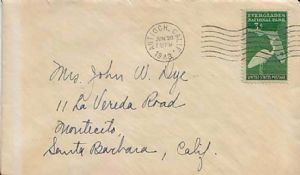 ANTIOCH, CALIF.
JUN 20
EVERGLADES
NATIONAL PARK
3¢
UNITED STATES POSTAGE
Mrs. John W. Dye
11 La Vereda Road
Montecito,
Santa Barbara, Calif.